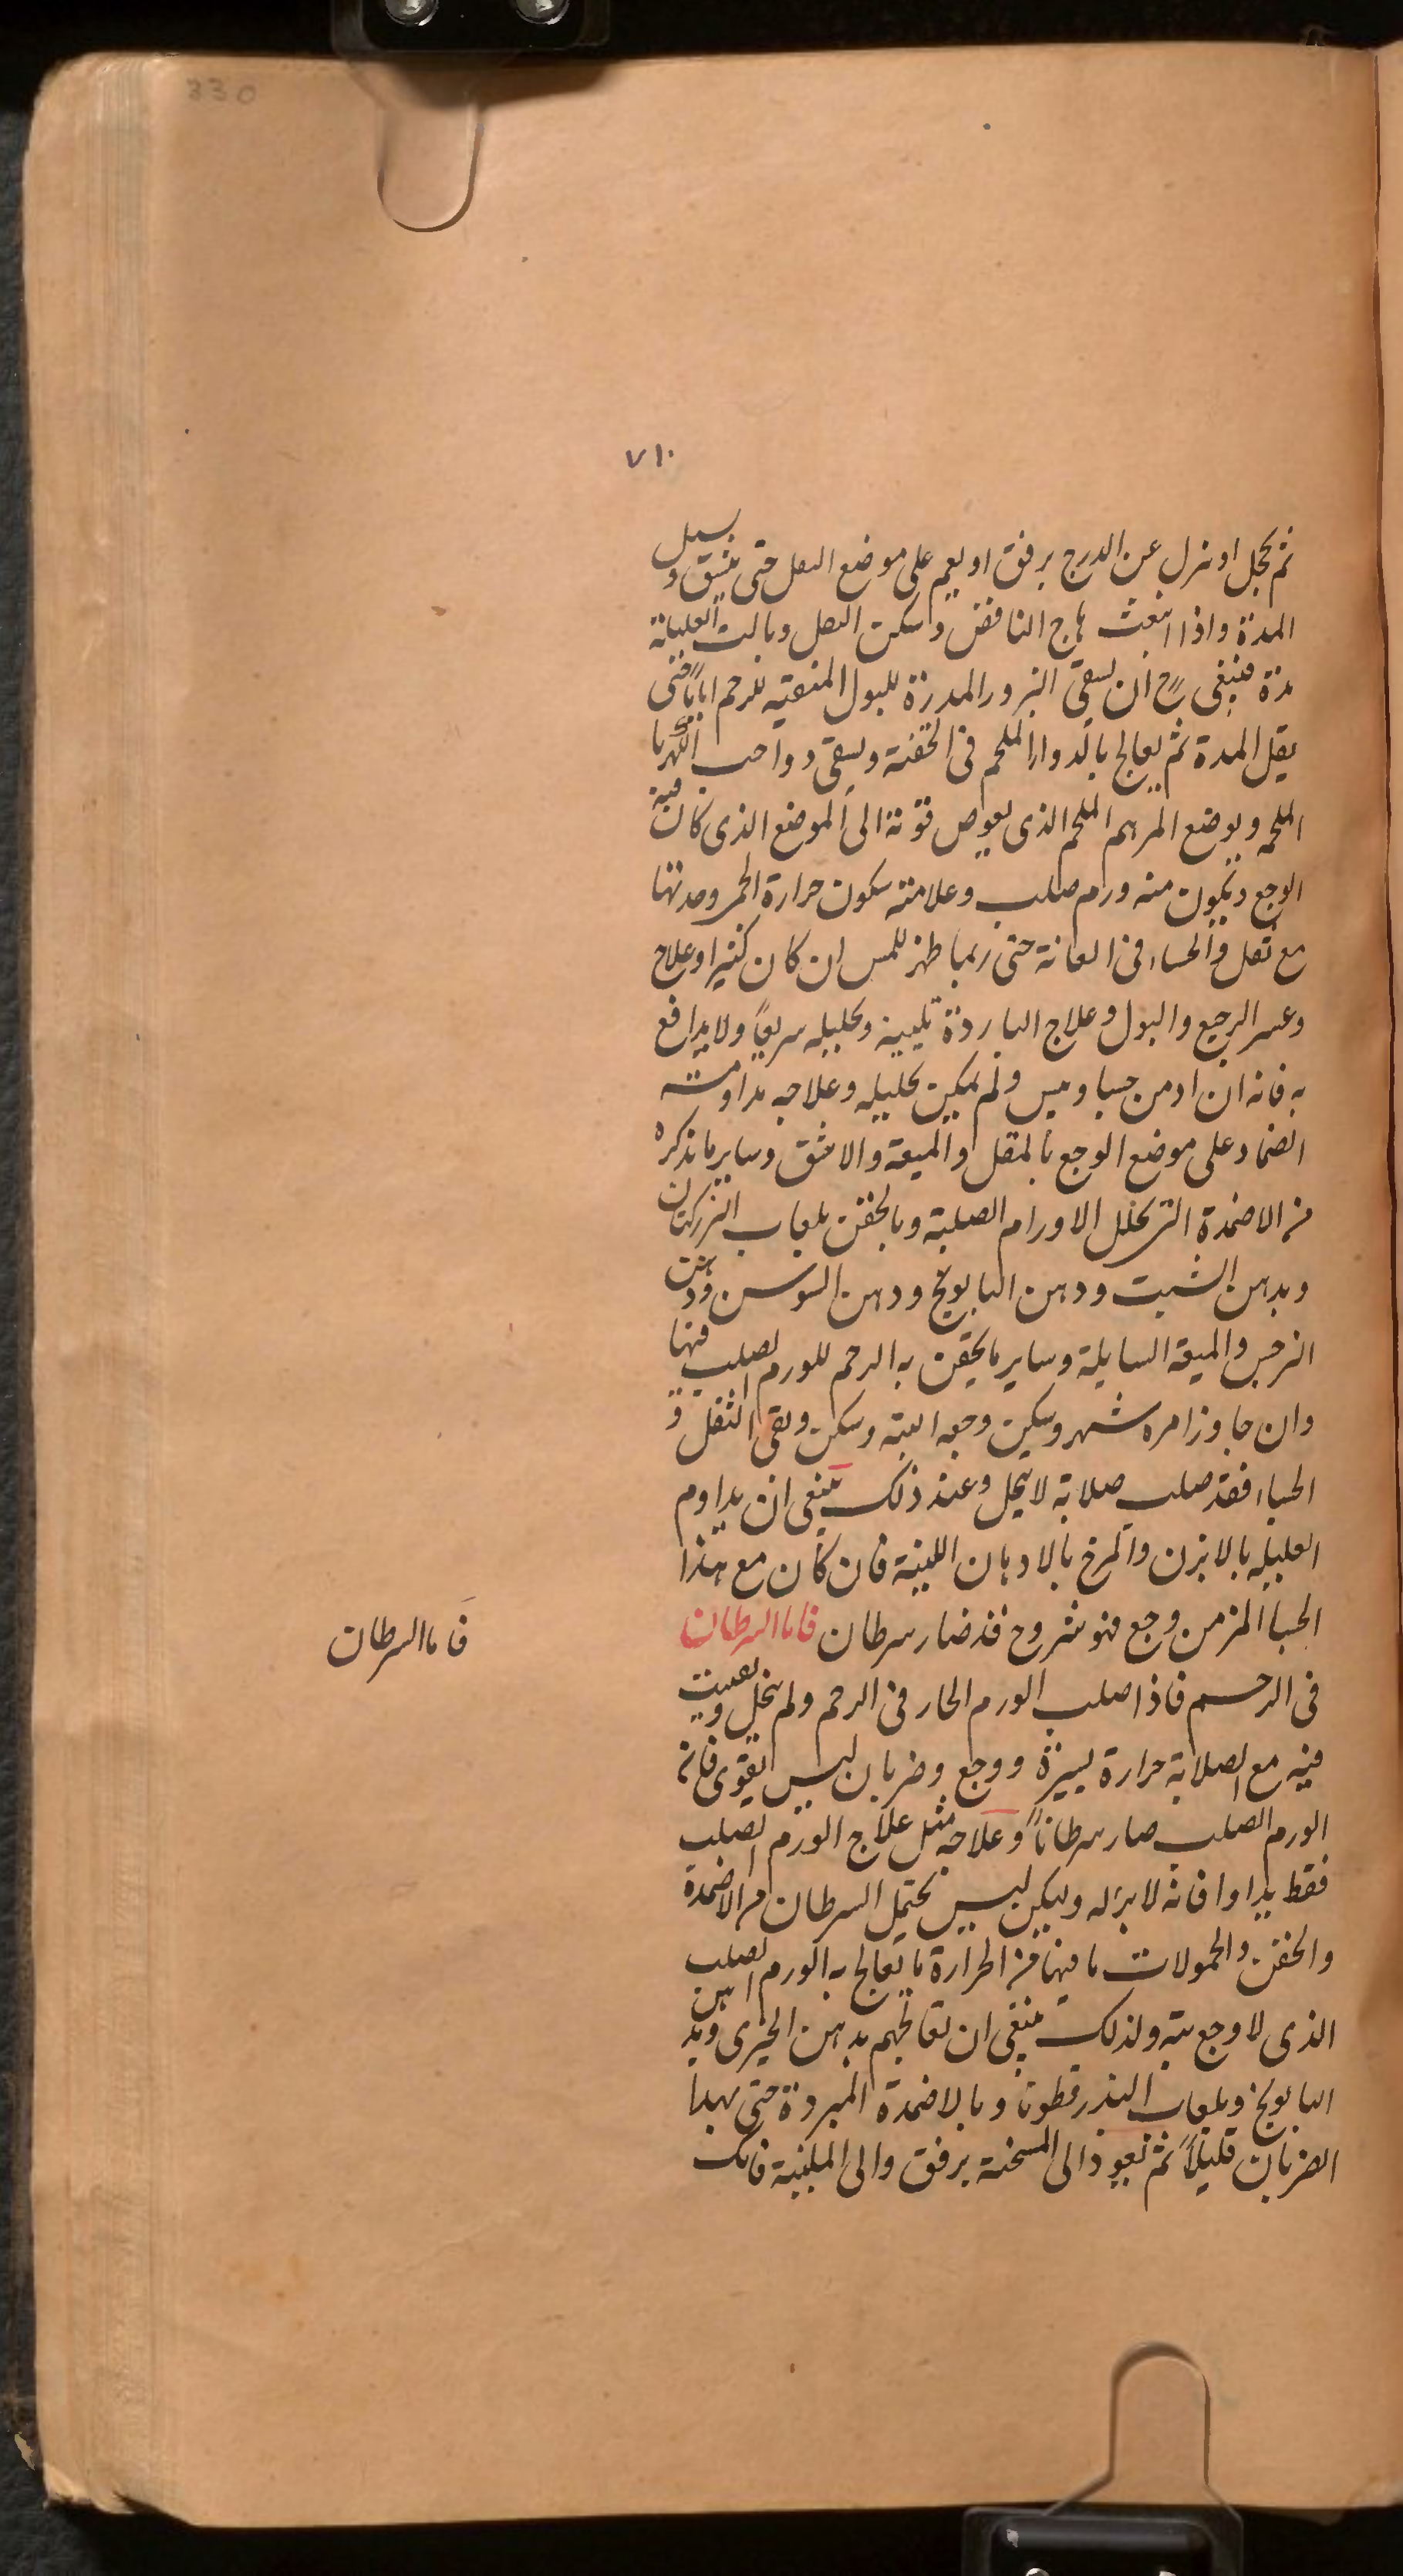 330
٧١٠
ثم تحجل او تنزل عن الدرج برفق او يغم على موضع الثقل حتى ينشق و يسيل
المدة واذا انبعث هاج النافض وسكن الثقل وبالت العليلة
مدة فينبغى ح ان يسقى البزور المدرة للبول المنقية للرحم اياما حتى
يقل المدة ثم يعالج بالدواء الملحم فى الحقنة ويسقى دواء حب الكهربا
الملحمة ويوضع المرهم الملحم الذى يغوص قوته الى الموضع الذى كان فيه
الوجع ويكون منه ورم صلب وعلامته سكون حرارة الحمى وحدتها
مع ثقل والحساء فى العانة حتى ربما ظهر للمس ان كان كثيرا وعلاج
وعسر الرجيع والبول وعلاج الباردة تليينه وتحليله سريعاً ولا يدافع
به فانه ان ازمن جسا ويبس ولم يمكن تحليله وعلاجه مداومته
الضماد على موضع الوجع بالمقل والميعة والاشق وساير ما نذكره
من الاضمدة التى تحلل الاورام الصلبة وبالحقن بلعاب البزركتان
وبدهن الشبت ودهن البابونج ودهن السوسن ودهن
النرجس والميعة السايلة وساير ما يحقن به الرحم للورم الصلب فيها
وان جاوز امره شهر وسكن وجعه البتة وسكن وبقى الثقل و
الجساء فقد صلب صلابة لا يحل وعند ذلك ينبغى ان يداوم
العليلة بالابزن والمرخ بالادهان اللينة فان كان مع هذا
الجسا المزمن وجع فهو شروح فقد صار سرطان فاما السرطان
فاما السرطان
فى الرحم فاذا صلب الورم الحار فى الرحم ولم يتحل وبقيت
فيه مع الصلابة حرارة يسيرة ووجع وضربان ليس بقوى فانه
الورم الصلب صار سرطاناً وعلاجه مثل علاج الورم الصلب
فقط يداوا فانه لا برء له ولكن ليس يحتمل السرطان من الاضمدة
والحقن والحمولات ما فيها من الحرارة ما يعالج به الورم الصلب
الذى لا وجع به ولذلك ينبغى ان تعالجهم بدهن الخيرى وبدهن
البابونج وبلعاب البذرقطونا وبالاضمدة المبردة حتى يهدأ
الضربان قليلاً ثم تعود الى المسخنة برفق والى الملينة فانك